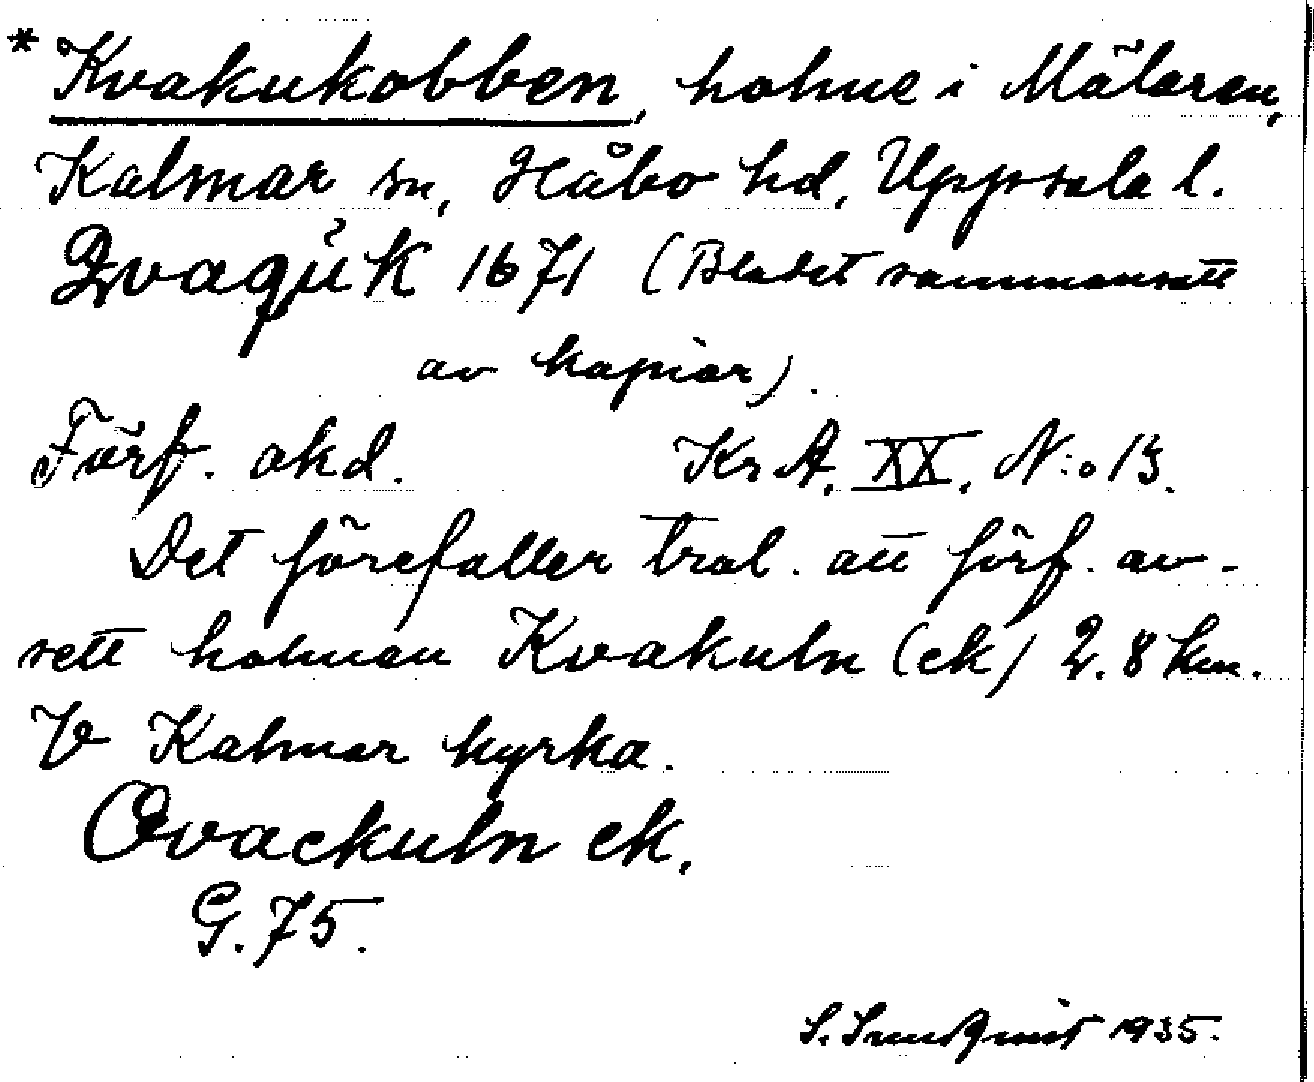 * Kvakukobben, holme i Mälaren,
Kalmar sn, Håbo hd, Uppsala l.
Qvagŭ K 1671 (Bladet sammansatt
av kopior).
Förf. okd. KrA. XX. N:o 13.
Det förefaller trol. att förf. av-
sett holmen Kvakuln (ek) 2.8 km.
V Kalmar kyrka.
Qvackuln ek.
G. 75.
S. Sundqvist 1935.